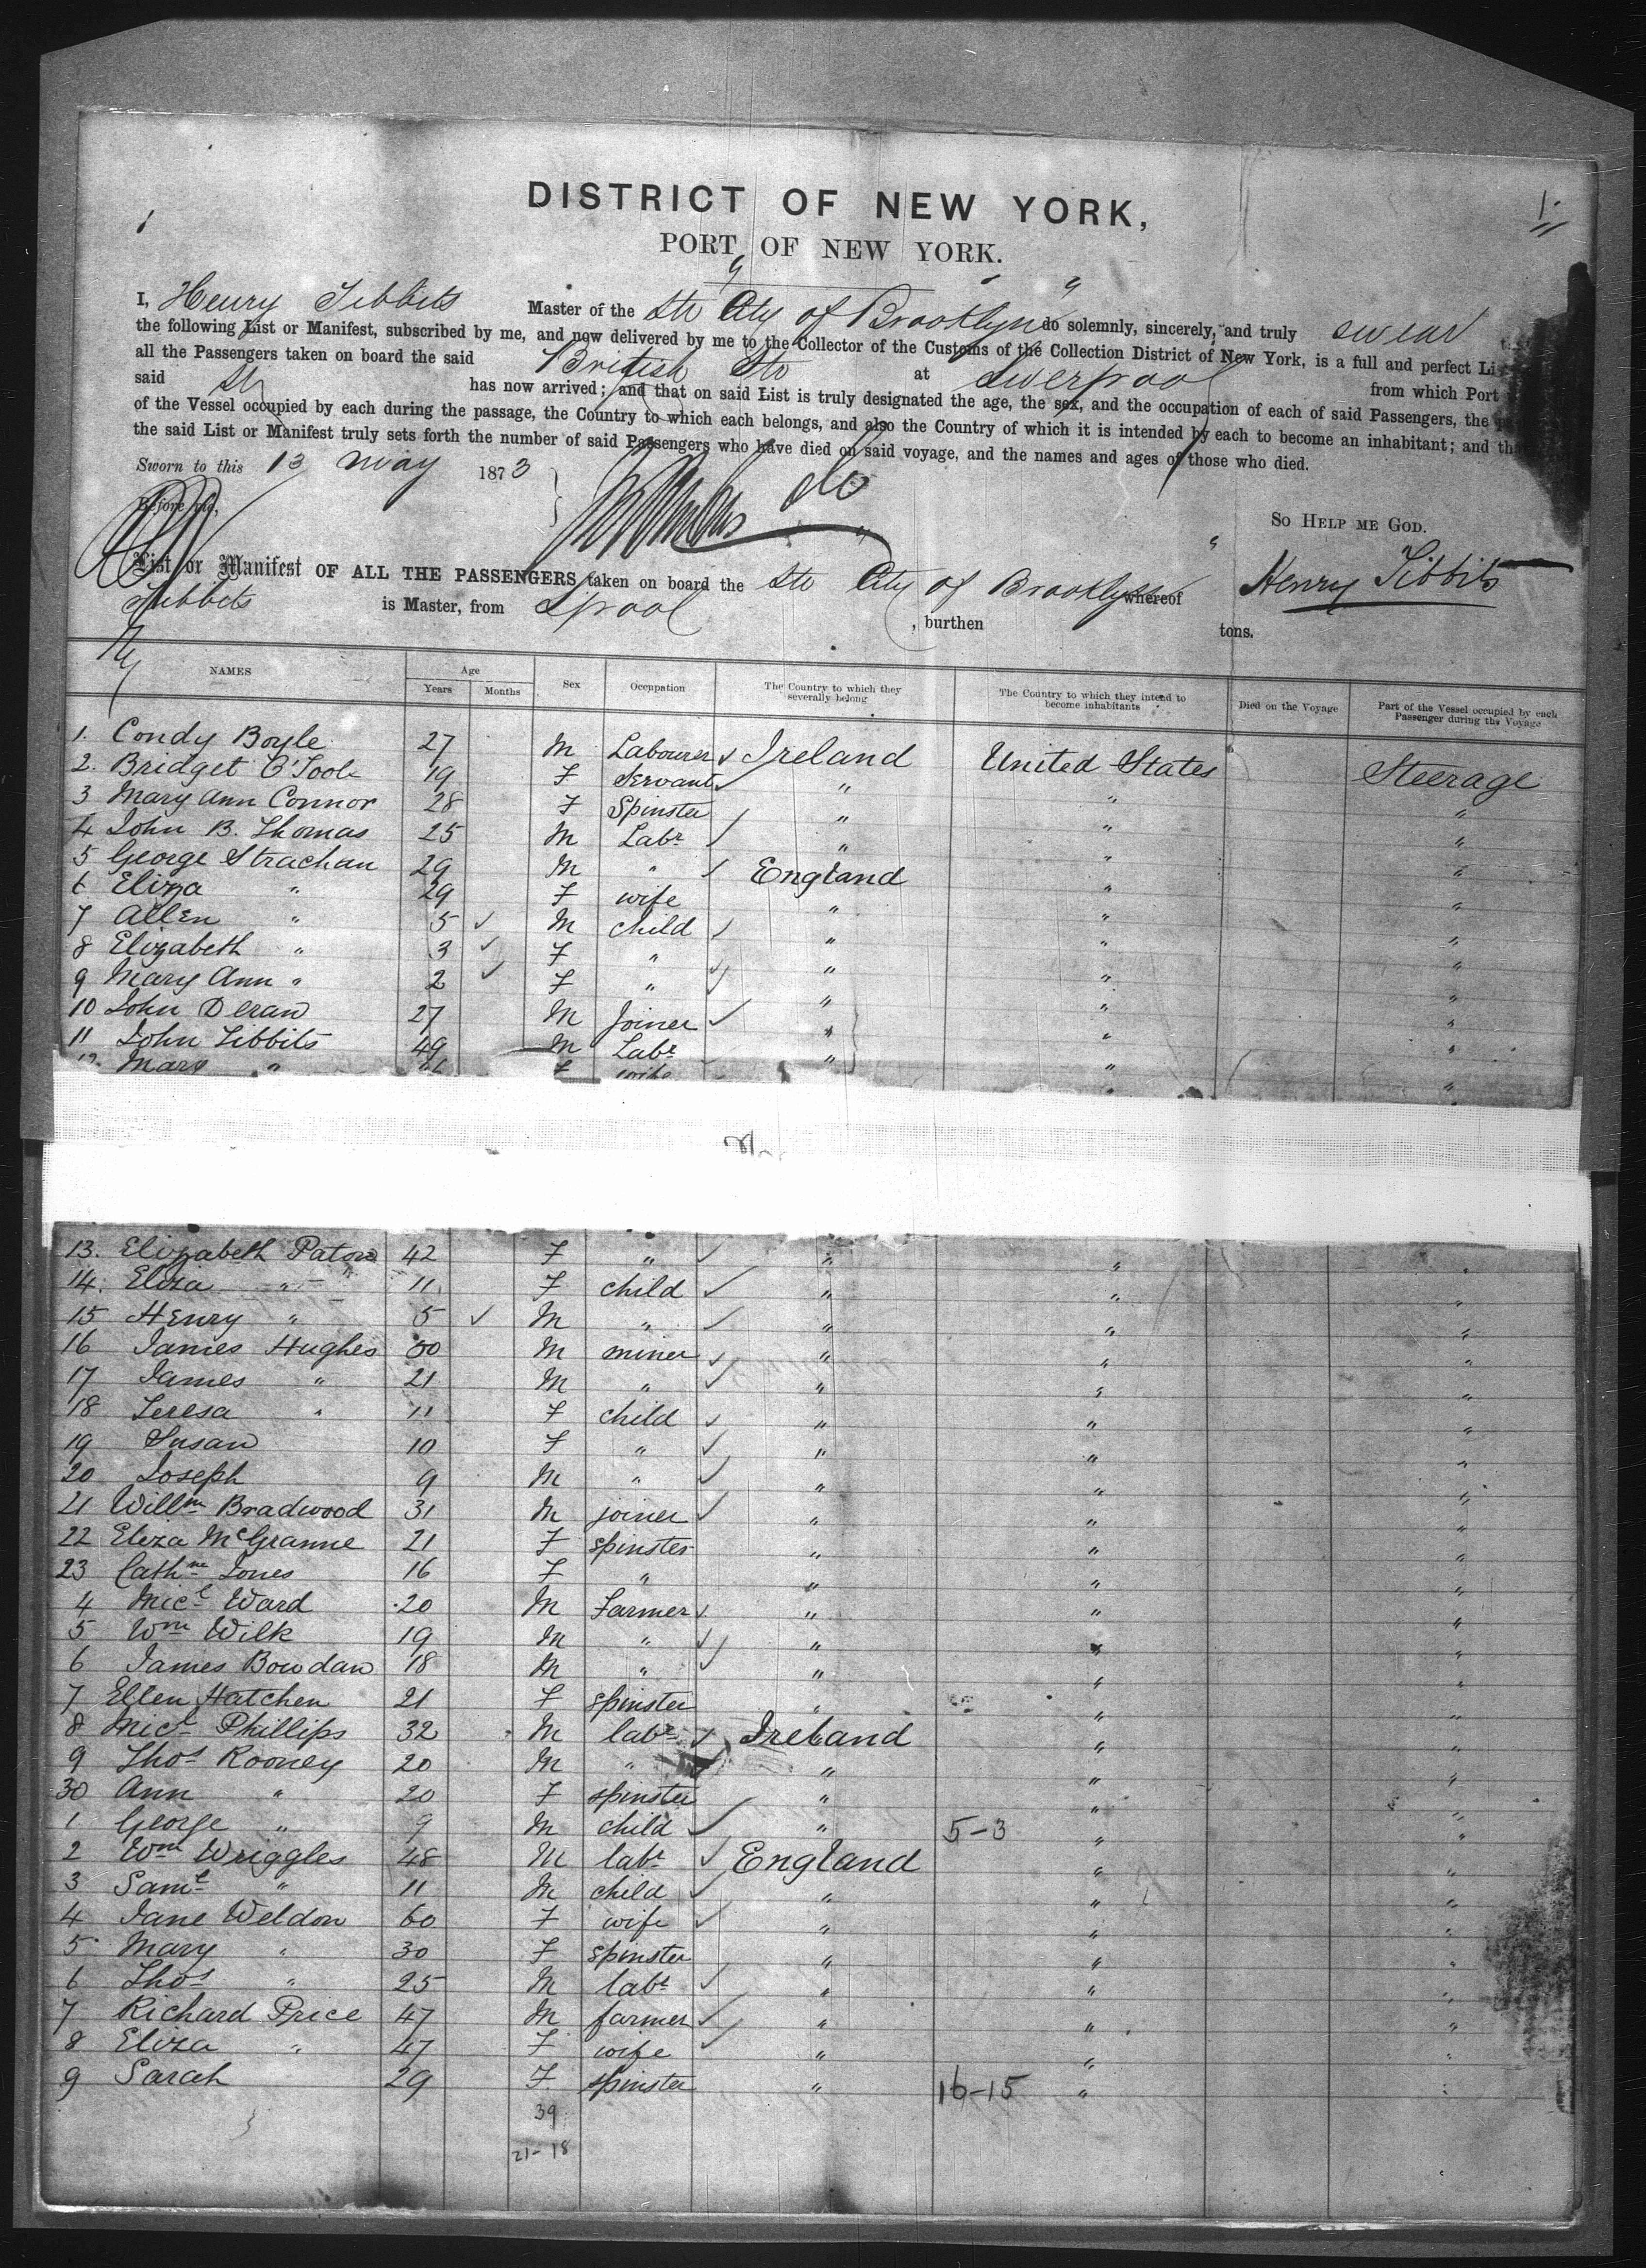 DISTRICT OF NEW YORK,
PORT OF NEW YORK.
I, Henry Tibbits Master of the Str City of Brooklyn do solemnly, sincerely, and truly swear
the following List or Manifest, subscribed by me, and now delivered by me to the Collector of the Customs of the Collection District of New York, is a full and perfect Li
all the Passengers taken on board the said British Str at Liverpool from which Port
said Str has now arrived; and that on said List is truly designated the age, the sex, and the occupation of each of said Passengers, the
of the Vessel occupied by each during the passage, the Country to which each belongs, and also the Country of which it is intended by each to become an inhabitant; and th
the said List or Manifest truly sets forth the number of said Passengers who have died on said voyage, and the names and ages of those who died.
Sworn to this 13 May 1873
Before me,
So HELP ME GOD.
List or Manifest OF ALL THE PASSENGERS taken on board the Str City of Brooklyn whereof Henry Tibbits
Tibbits is Master, from Lpool , burthen tons.
NAMES Age Years Months Sex Occupation The Country to which they severally belong The Country to which they intend to become inhabitants Died on the Voyage Part of the Vessel occupied by each Passenger during the Voyage
1. Condy Boyle 27 M Labourer ✓ Ireland United States Steerage
2. Bridget O'Toole 19 F Servant ✓ " " "
3 Mary Ann Connor 28 F Spinster " " "
4 John B. Thomas 25 M Labr ✓ " " "
5 George Strachan 29 M " ✓ England " "
6 Eliza " 29 F wife " " "
7 Allen " 5 ✓ M child ✓ " " "
8 Elizabeth " 3 ✓ F " " " "
9 Mary Ann " 2 ✓ F " ✓ " " "
10 John Deran 27 M Joiner ✓ " " "
11 John Tibbits 49 M Labr " " "
12 Mary " F wife " "
13. Elizabeth Paton 42 F " ✓ " " "
14. Eliza " 11 F child ✓ " " "
15 Henry " 5 ✓ M " ✓ " " "
16 James Hughes 50 M miner ✓ " " "
17 James " 21 M " ✓ " " "
18 Teresa " 11 F child ✓ " " "
19 Susan 10 F " ✓ " " "
20 Joseph 9 M " ✓ " " "
21 Willm Bradwood 31 M joiner ✓ " " "
22 Eliza McGranne 21 F spinster " " "
23 Cathne Jones 16 F " " " "
4 Micl Ward 20 M Farmer ✓ " " "
5 Wm Wilk 19 M " ✓ " " "
6 James Bowdan 18 M " ✓ " " "
7 Ellen Hatchen 21 F spinster " " "
8 Micl Phillips 32 M labr ✓ Ireland " "
9 Thos Rooney 20 M " ✓ " " "
30 Ann " 20 F spinster " " "
1 George " 9 M child ✓ " 5-3 " "
2 Wm Wriggles 48 M labr ✓ England " "
3 Saml " 11 M child ✓ " " "
4 Jane Weldon 60 F wife ✓ " " "
5 Mary " 30 F spinster " " "
6 Thos " 25 M labr ✓ " " "
7 Richard Price 47 M farmer ✓ " " "
8 Eliza " 47 F wife ✓ " " "
9 Sarah 29 F spinster " 16-15 " "
39
21-18